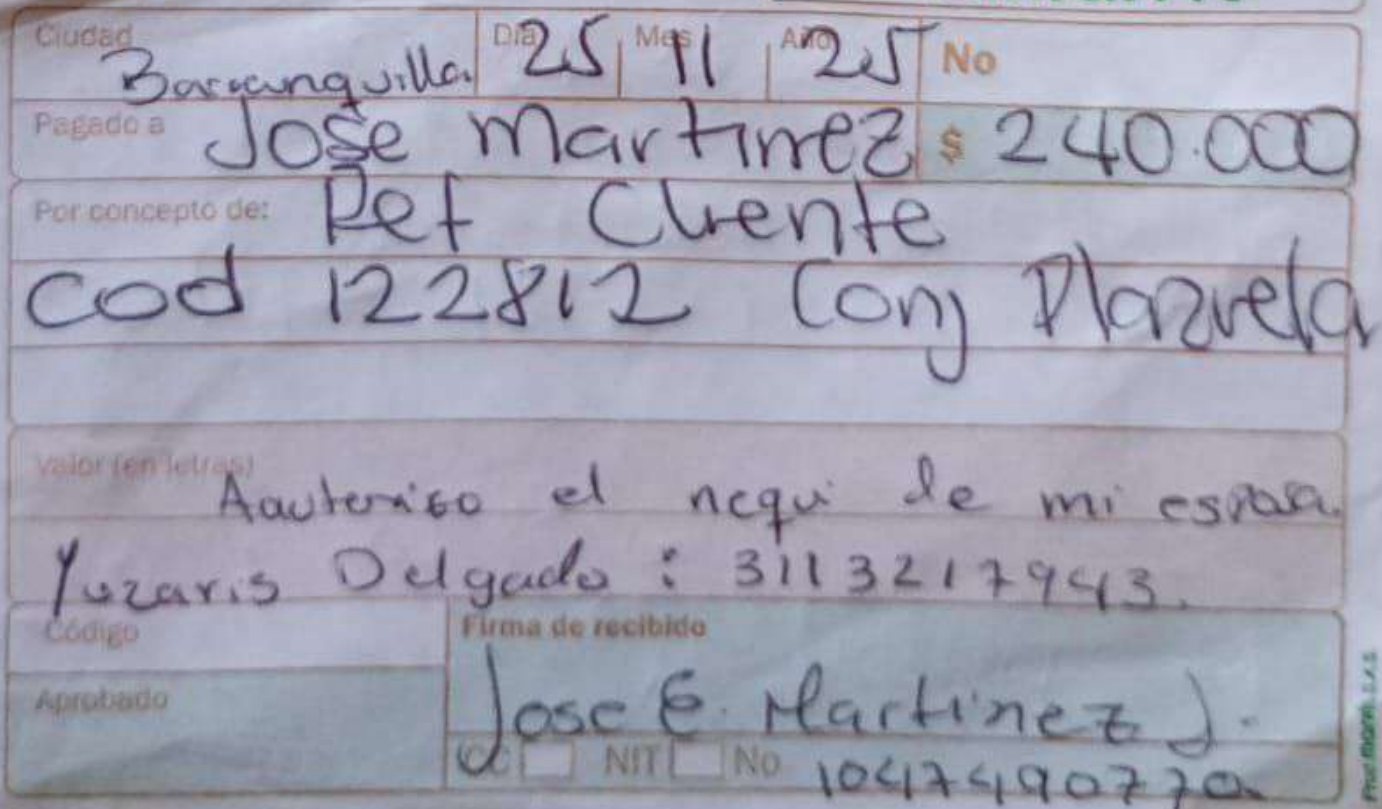 Ciudad Barranquilla Día 25 Mes 11 Año 25 No
Pagado a Jose Martinez $ 240.000
Por concepto de: Ref Cliente
Cod 122812 Conj Plazuela
Valor (en letras)
Aauteriso el nequi de mi esposa
Yuzaris Delgado : 3113217943.
Código Firma de recibido
Aprobado Jose E. Martinez J.
CC NIT No 1047490770